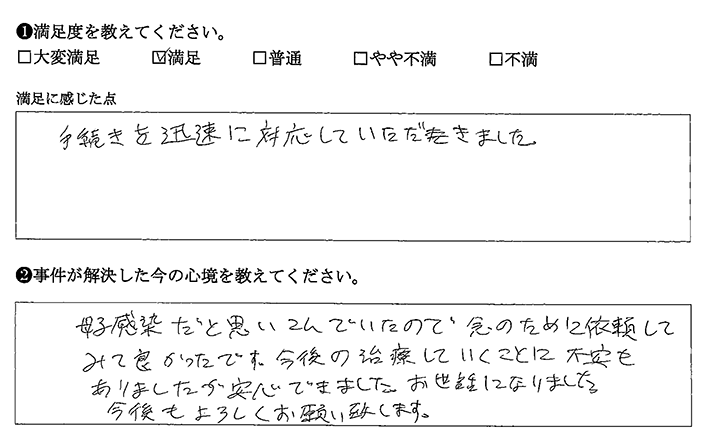 ❶満足度を教えてください。
□大変満足 ☑満足 □普通 □やや不満 □不満
満足に感じた点
手続きを迅速に対応していただきました。
❷事件が解決した今の心境を教えてください。
母子感染だと思いこんでいたので念のために依頼して
みて良かったです。今後の治療していくことに不安も
ありましたが安心できました。お世話になりました。
今後もよろしくお願い致します。